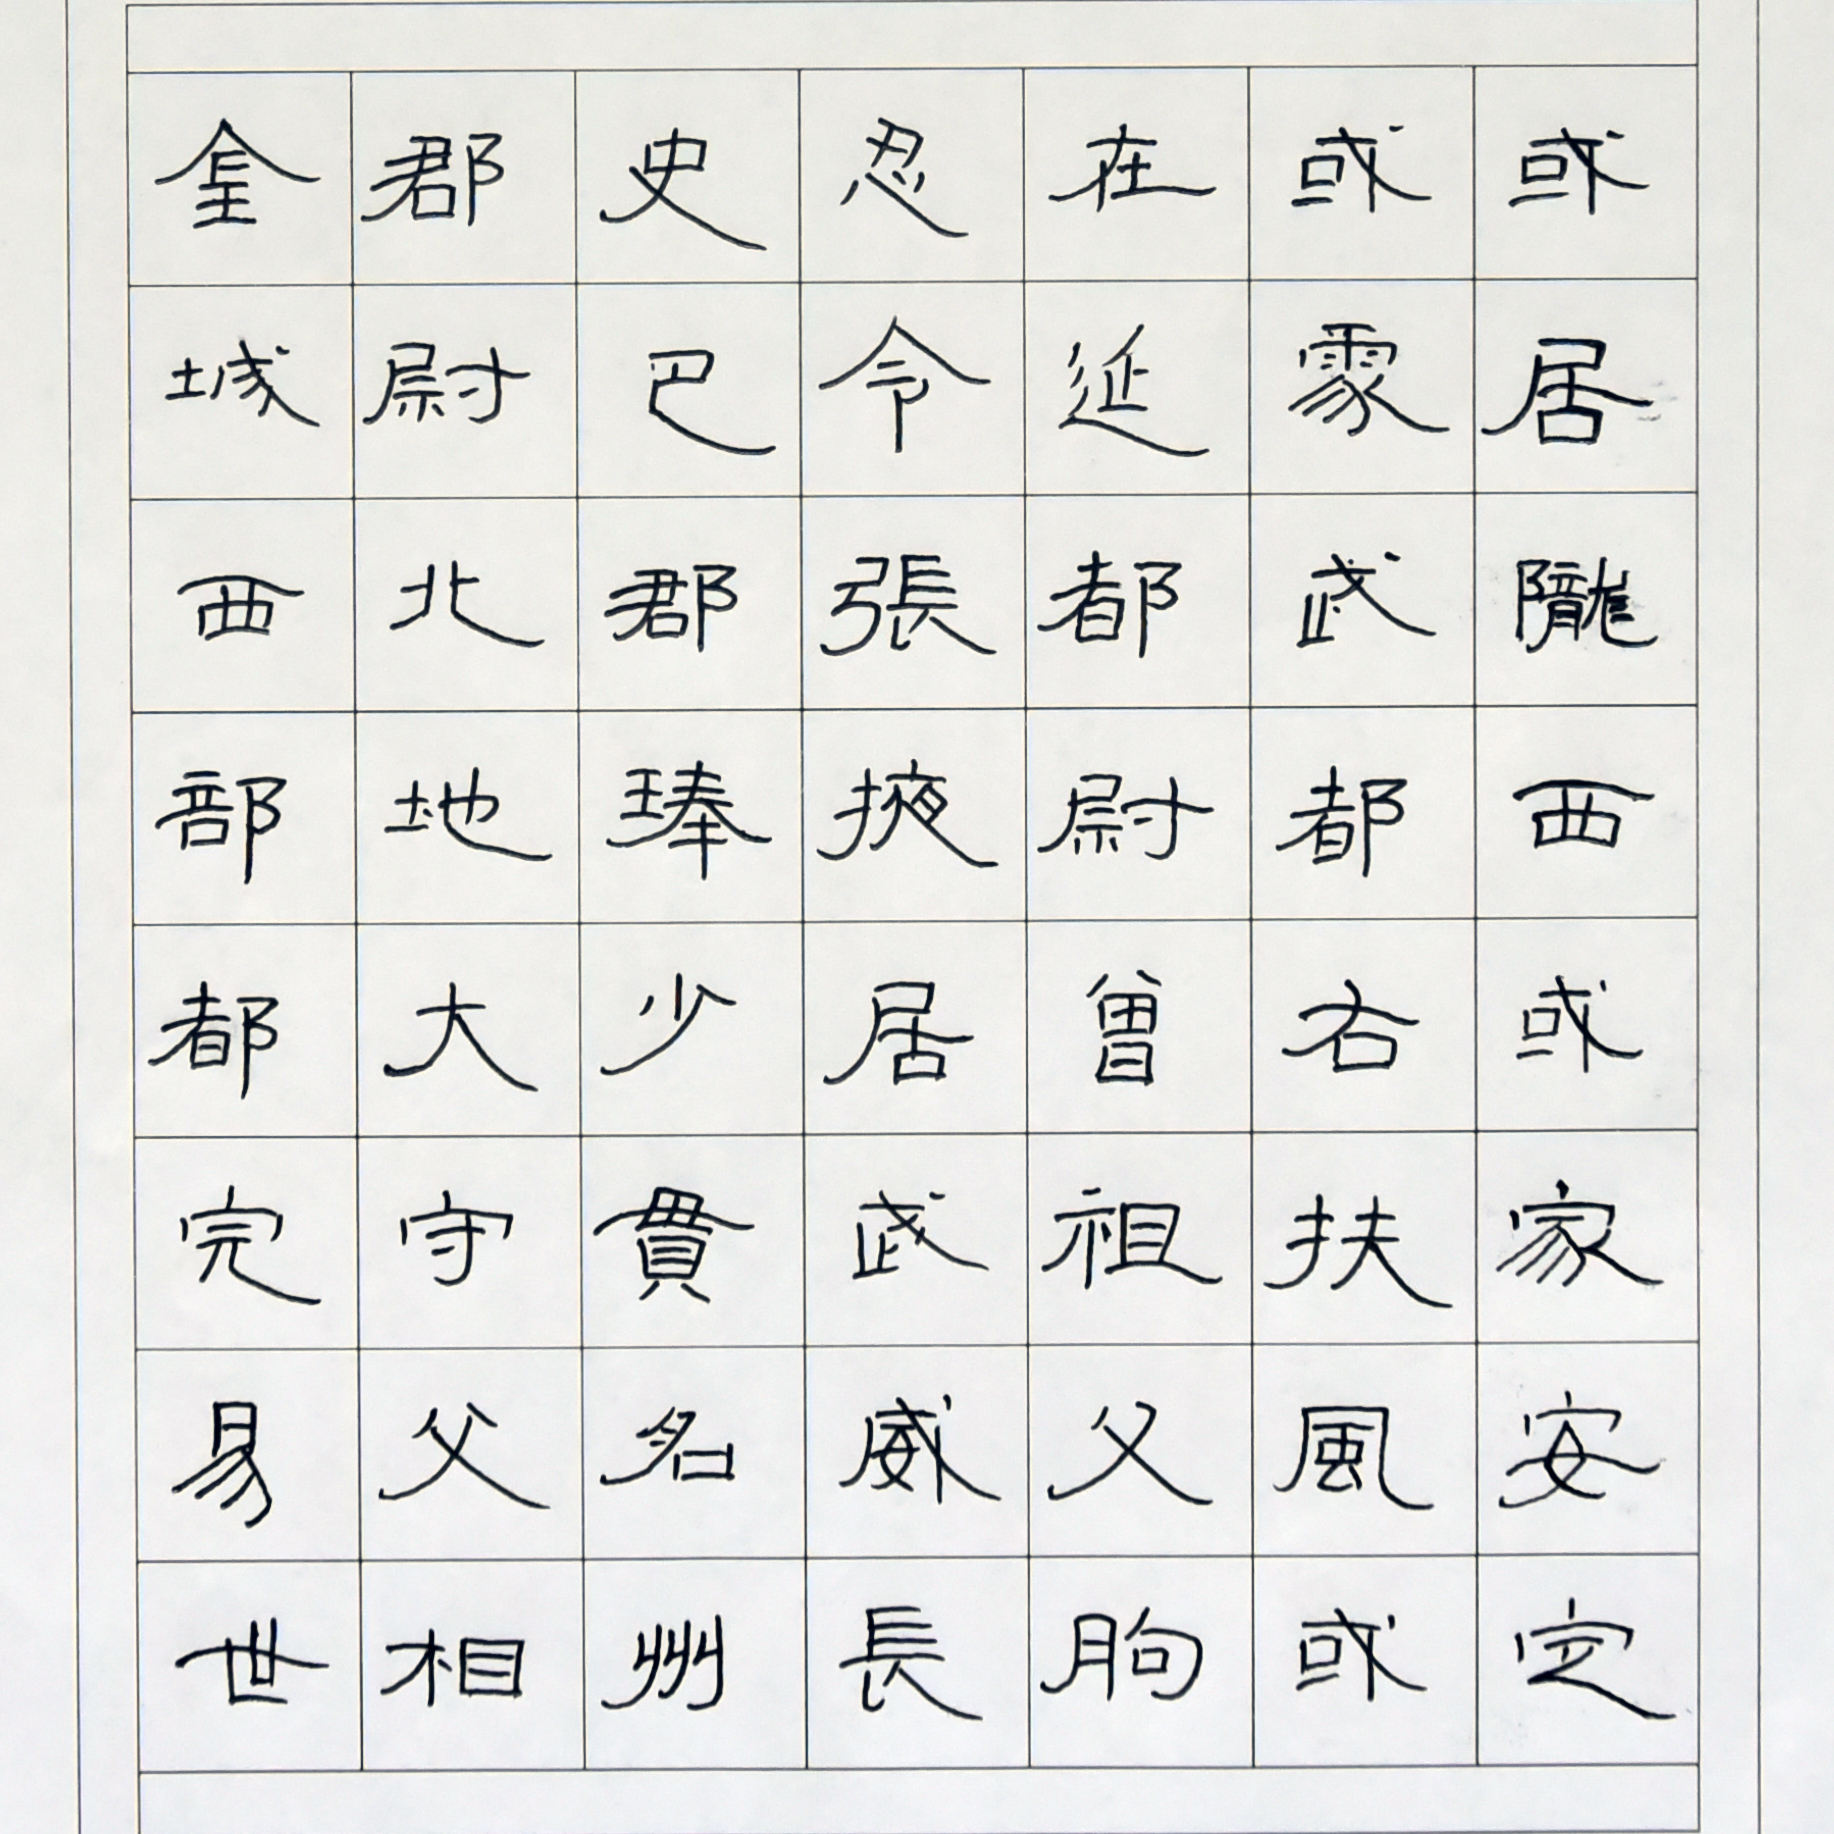 或居隴西或家安定
或處武都右扶風或
在延都尉曾祖父朐
忍令張掖居武威長
史巴郡琫少貫名州
郡尉北地大守父相
金城西部都完易世